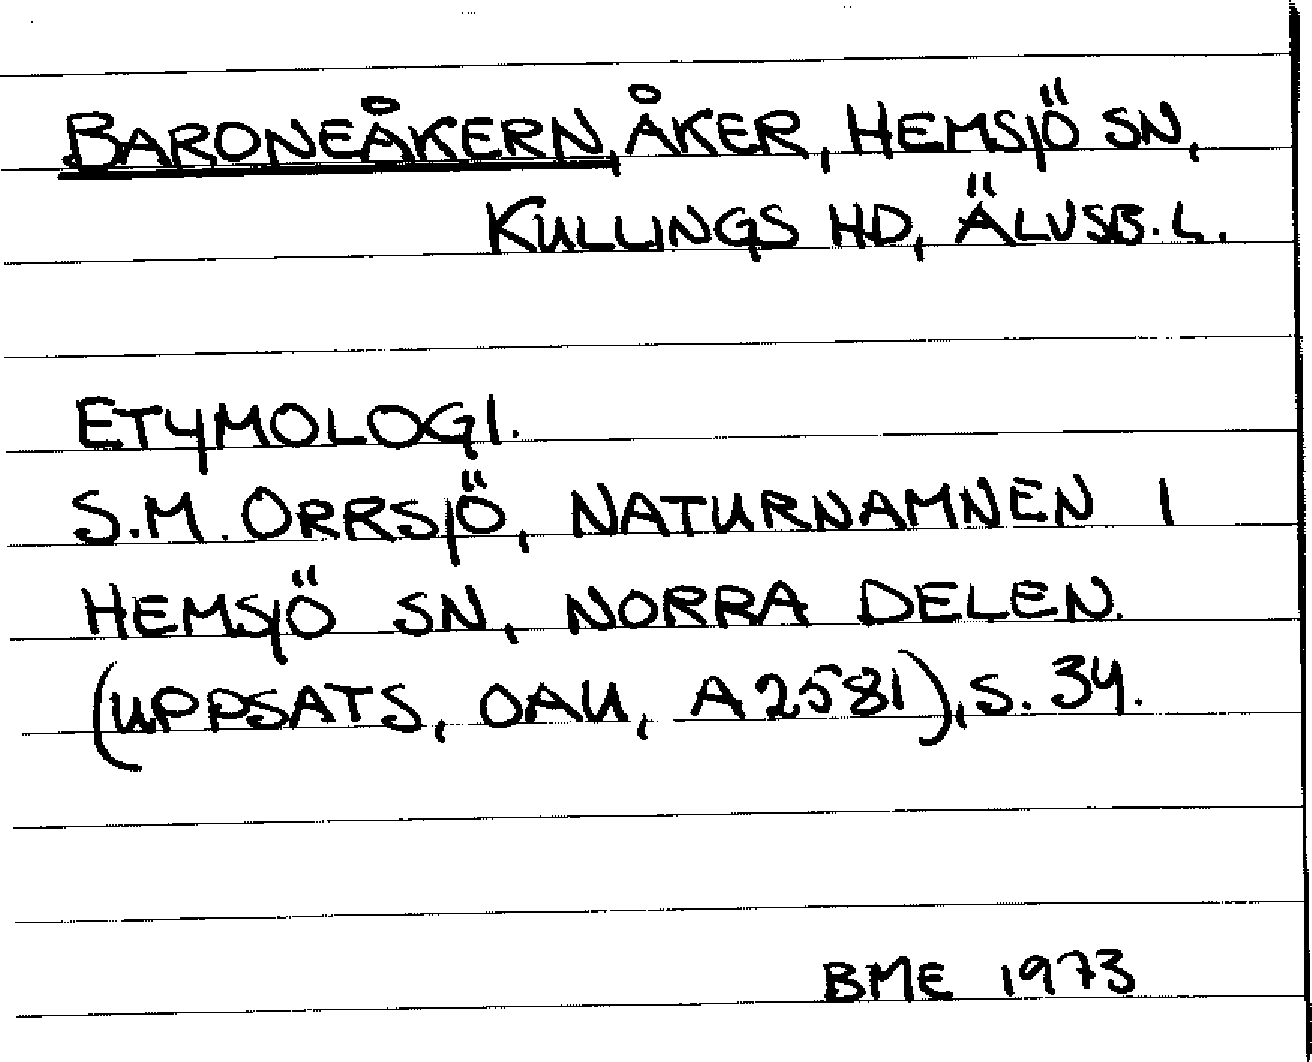 BARONEÅKERN, ÅKER, HEMSJÖ SN,
KULLINGS HD, ÄLVSB. L.
ETYMOLOGI.
S.M. ORRSJÖ, NATURNAMNEN I
HEMSJÖ SN, NORRA DELEN.
(UPPSATS, OAU, A2581), S. 34.
BME 1973